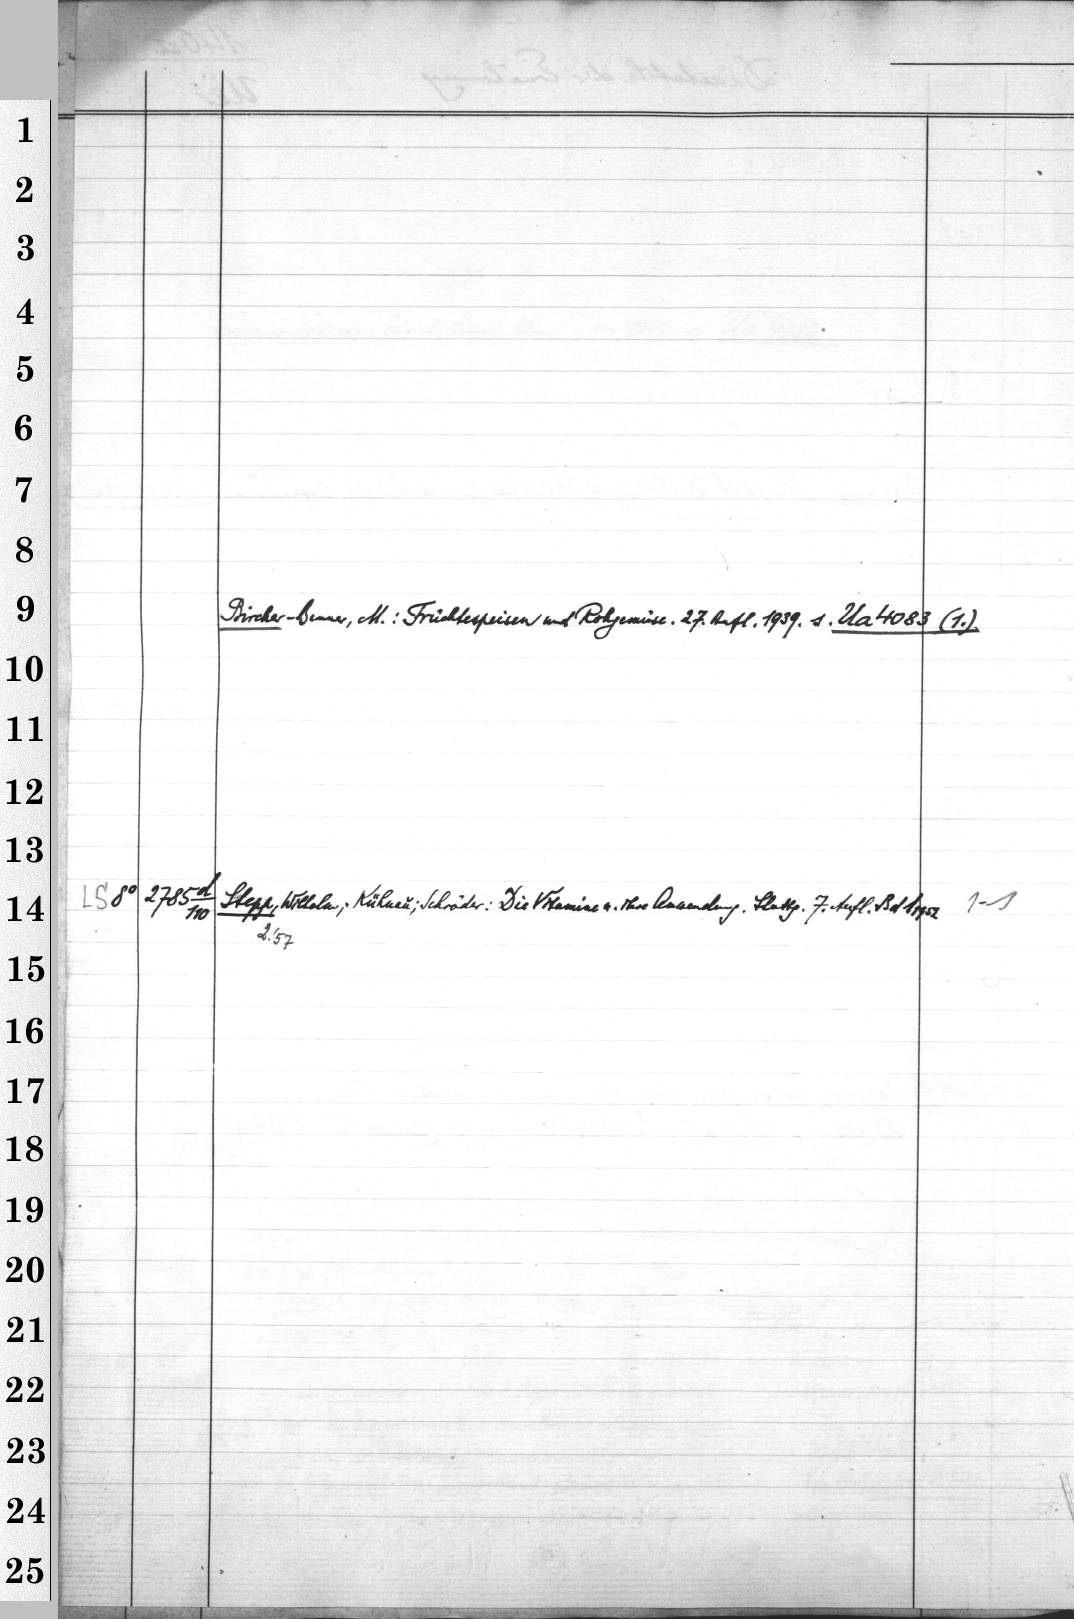 1
2
3
4
5
6
7
8
9 Bircher-Benner, M.: Früchtespeisen und Rohgemüse. 27. Aufl. 1939. s. Ua 4083 (1.)
10
11
12
13
14 LS 8° 2785 d/110 Stepp, Wilhelm; Kühnau; Schröder: Die Vitamine u. ihre Anwendung. Stuttg. 7. Aufl. Bd 1 1952 1-1
2.'57
15
16
17
18
19
20
21
22
23
24
25